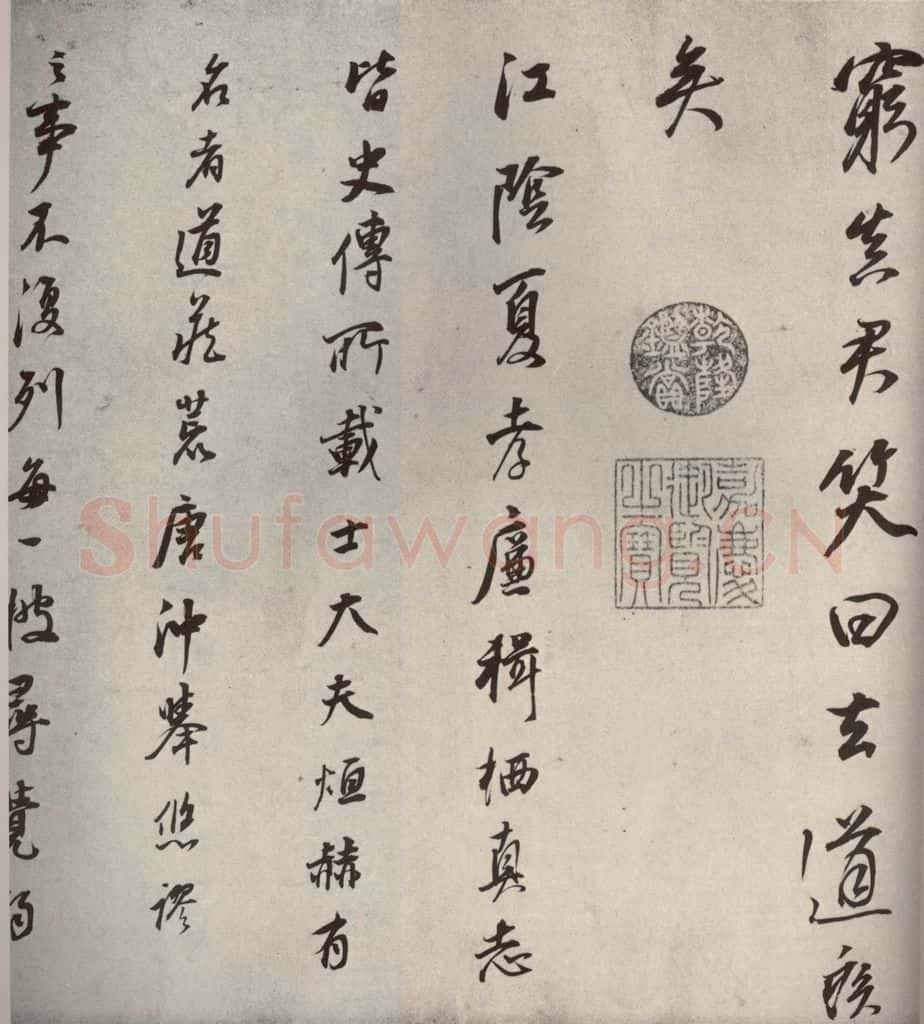 窮真君笑曰去道疾
矣
乾隆鑑賞
嘉慶御覽之寶
江陰夏孝廉輯栖真志
皆史傳所載士大夫烜赫有
名者道藏荒唐沖舉悠謬
之事不復列每一披尋覺
Shufawang.CN